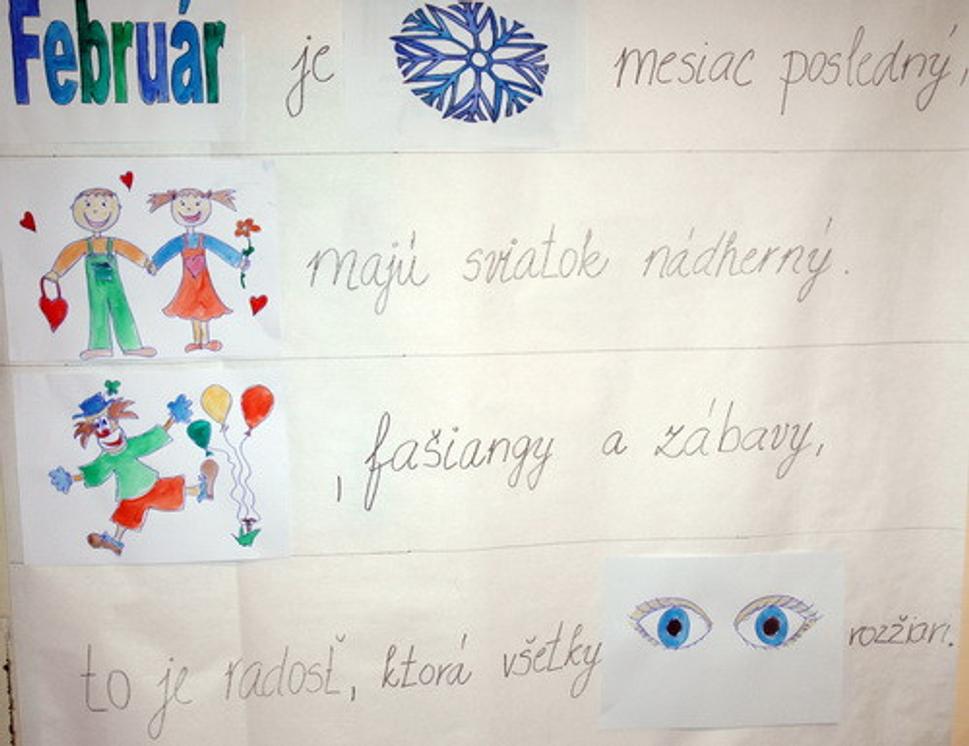 Február je mesiac posledný,
majú sviatok nádherný.
, fašiangy a zábavy,
to je radosť, ktorá všetky rozžiari.